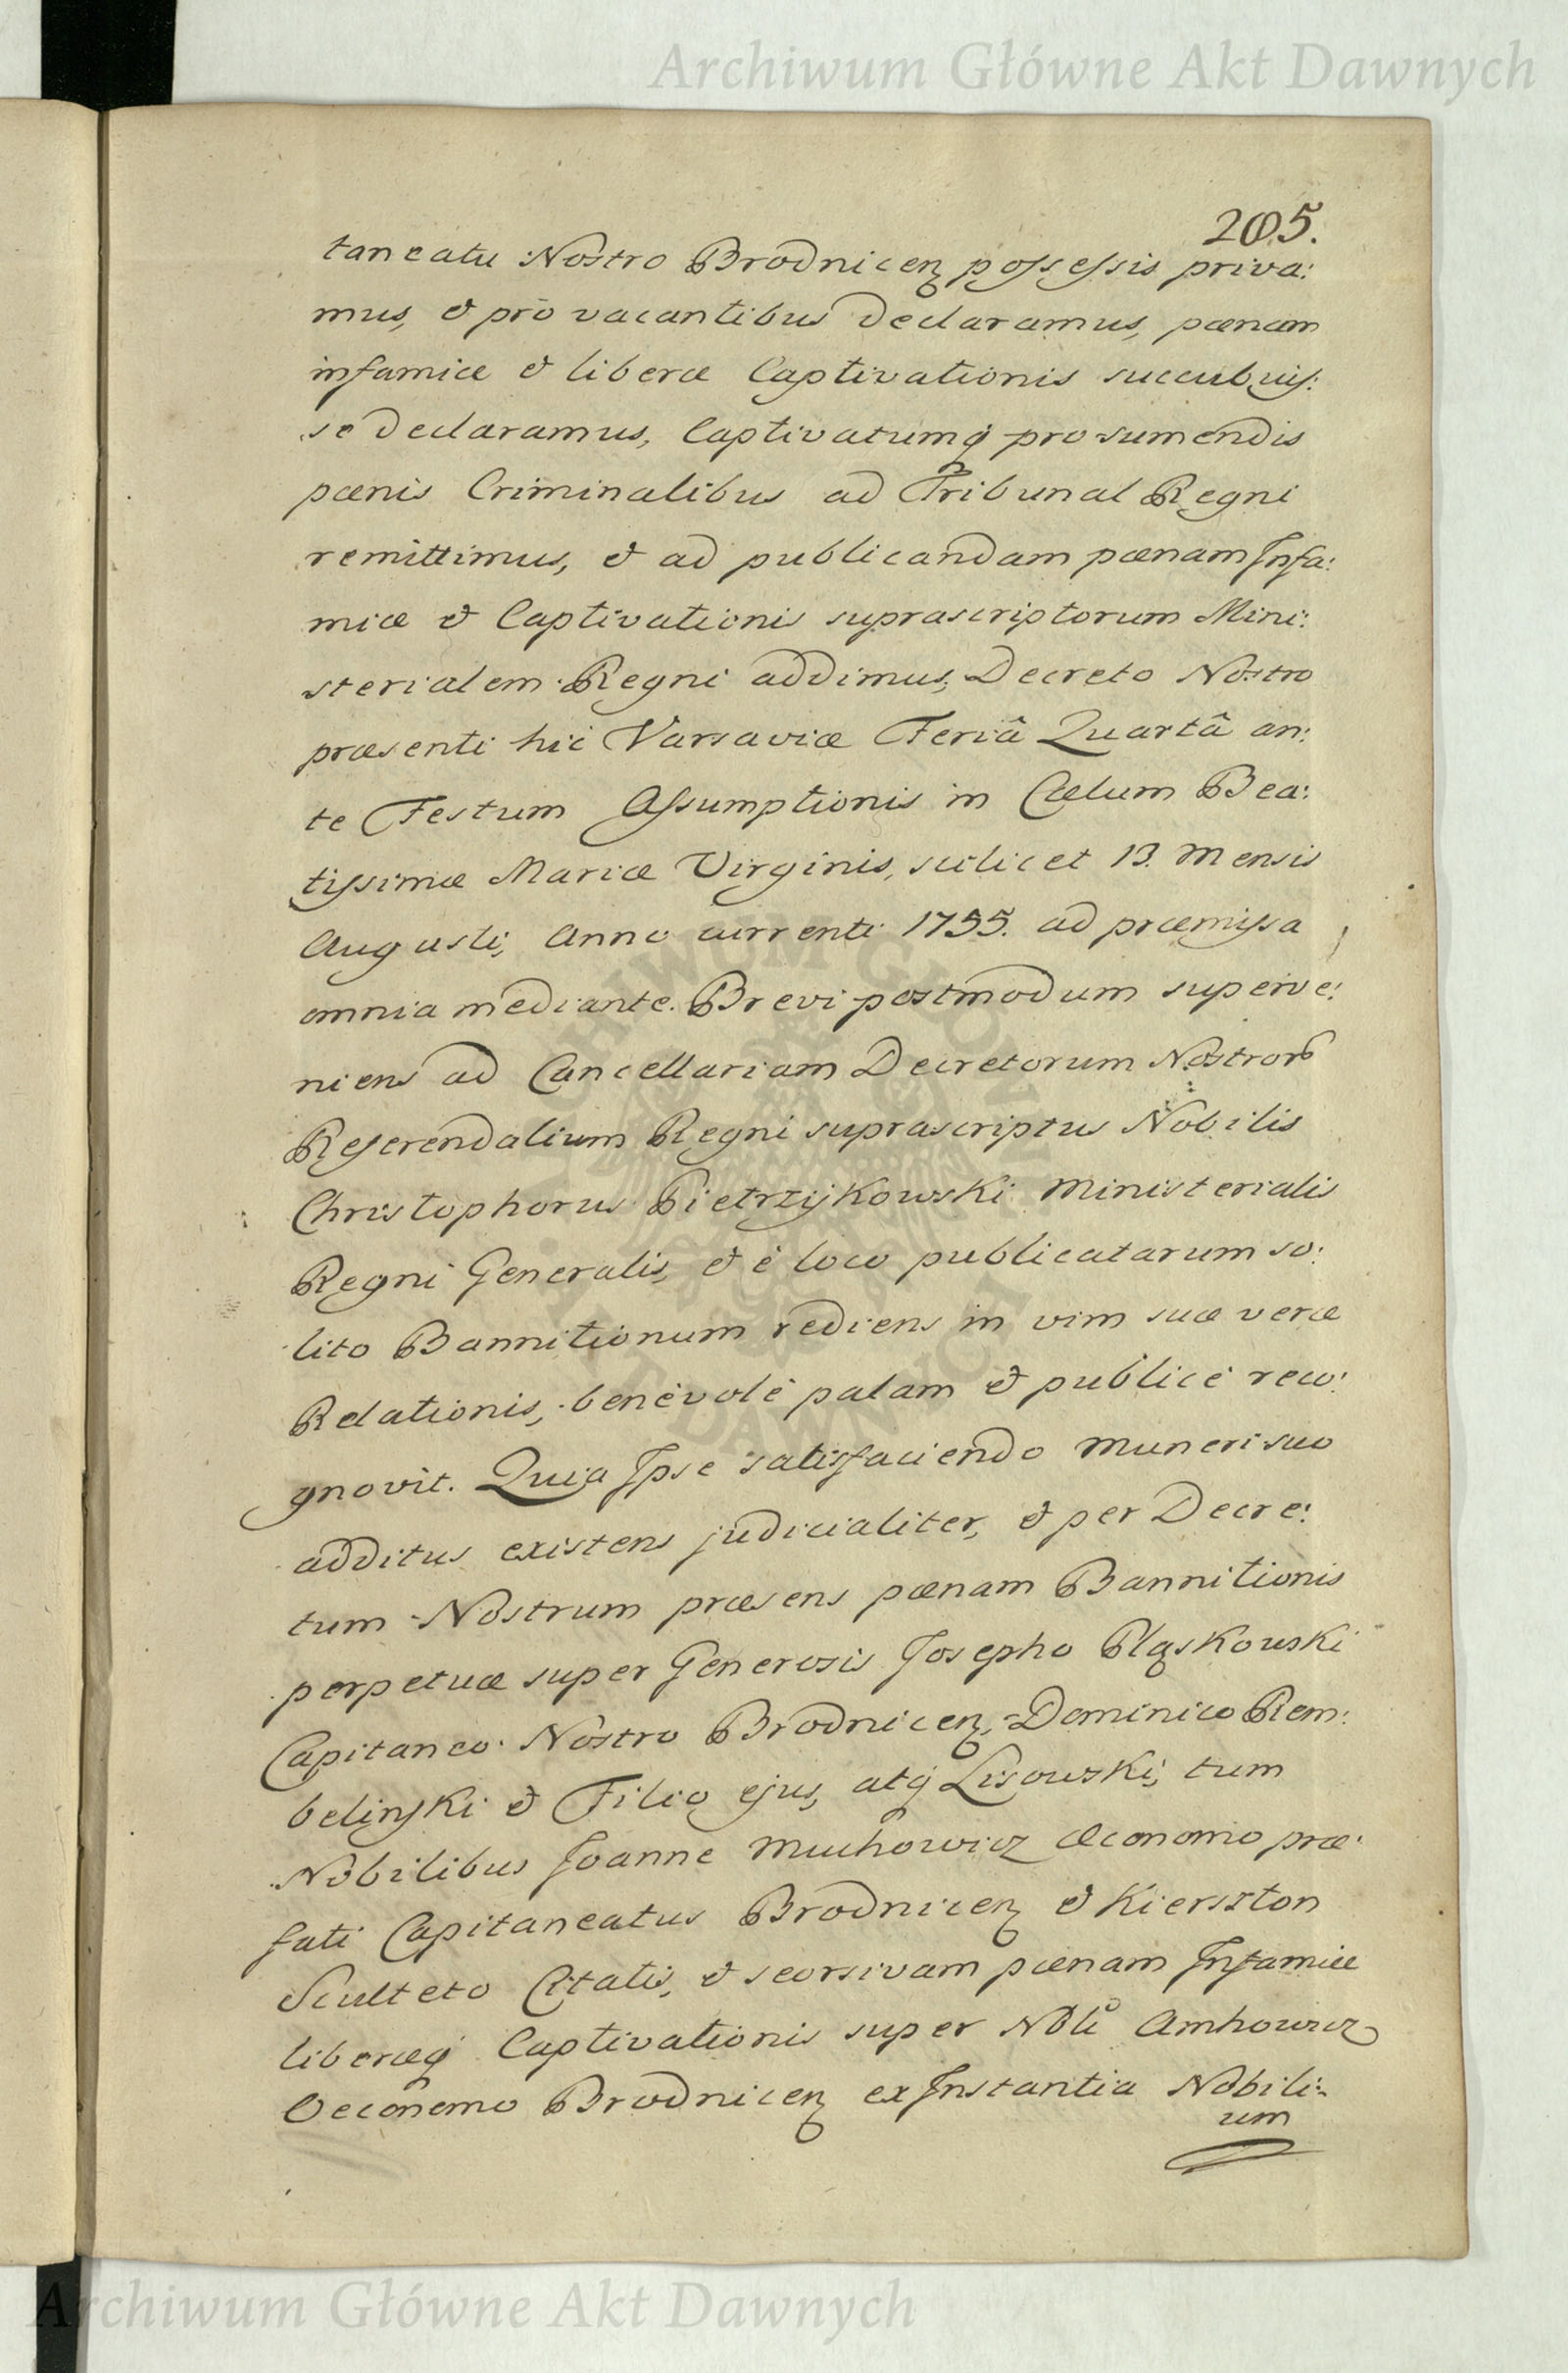 Archiwum Główne Akt Dawnych
205.
taneatu Nostro Brodnicen̄ possessis priva:
mus, & pro vacantibus declaramus, pœnam
infamiæ & liberæ Captivationis succubuis:
se declaramus, Captivatumq̃ pro sumendis
pœnis Criminalibus ad Tribunal Regni
remittimus, & ad publicandam pœnam Infa:
miæ & Captivationis suprascriptorum Mini:
sterialem Regni addimus, Decreto Nostro
præsenti hic Varsaviæ Feriâ Quartâ an:
te Festum Assumptionis in Cœlum Bea:
tissimæ Mariæ Virginis, scilicet 13. Mensis
Augusti, Anno currenti 1755. ad præmissa
omnia mediante. Brevi postmodum superve:
niens ad Cancellariam Decretorum Nostror̃
Referendalium Regni suprascriptus Nobilis
Christophorus Pietrzÿkowski Ministerialis
Regni Generalis, & è loco publicatarum so:
lito Bannitionum rediens in vim suæ veræ
Relationis, benevolè palam & publicè reco:
gnovit. Quia Ipse satisfaciendo Muneri suo
additus existens judicialiter, & per Decre:
tum Nostrum præsens pœnam Bannitionis
perpetuæ super Generosis Josepho Pląskowski
Capitaneo Nostro Brodnicen̄, Dominico Rem:
belinski & Filio ejus, atq̃ Lisowski, tum
Nobilibus Joanne Muchowicz Œconomo præ:
fati Capitaneatus Brodnicen̄ & Kierszton
Sculteto Citatis, & seorsivam pœnam Infamiæ
liberæq̃ Captivationis super Nõli Amhowicz
Oeconomo Brodnicen̄ ex Instantia Nobili:
um
Archiwum Główne Akt Dawnych